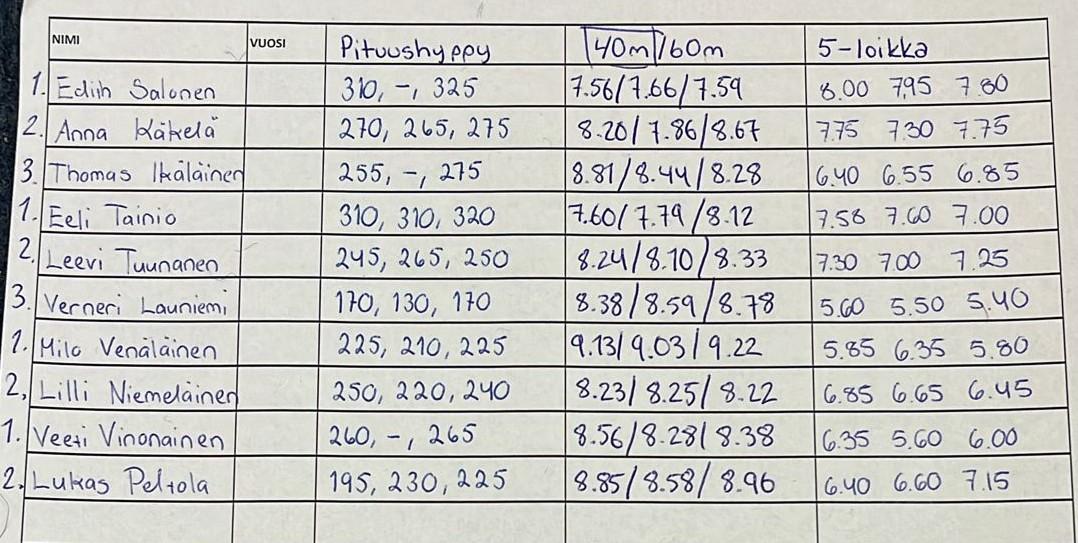 NIMI VUOSI Pituushyppy 40m/60m 5-loikka
1. Edith Salonen 310, -, 325 7.56/7.66/7.59 8.00 7.95 7.80
2. Anna Käkelä 270, 265, 275 8.20/7.86/8.67 7.75 7.30 7.75
3. Thomas Ikäläinen 255, -, 275 8.81/8.44/8.28 6.40 6.55 6.85
1. Eeli Tainio 310, 310, 320 7.60/7.79/8.12 7.58 7.60 7.00
2. Leevi Tuunanen 245, 265, 250 8.24/8.10/8.33 7.30 7.00 7.25
3. Verneri Launiemi 170, 130, 170 8.38/8.59/8.78 5.60 5.50 5.40
1. Milo Venäläinen 225, 210, 225 9.13/9.03/9.22 5.85 6.35 5.80
2, Lilli Niemeläinen 250, 220, 240 8.23/8.25/8.22 6.85 6.65 6.45
1. Veeti Vinonainen 260, -, 265 8.56/8.28/8.38 6.35 5.60 6.00
2. Lukas Peltola 195, 230, 225 8.85/8.58/8.96 6.40 6.60 7.15